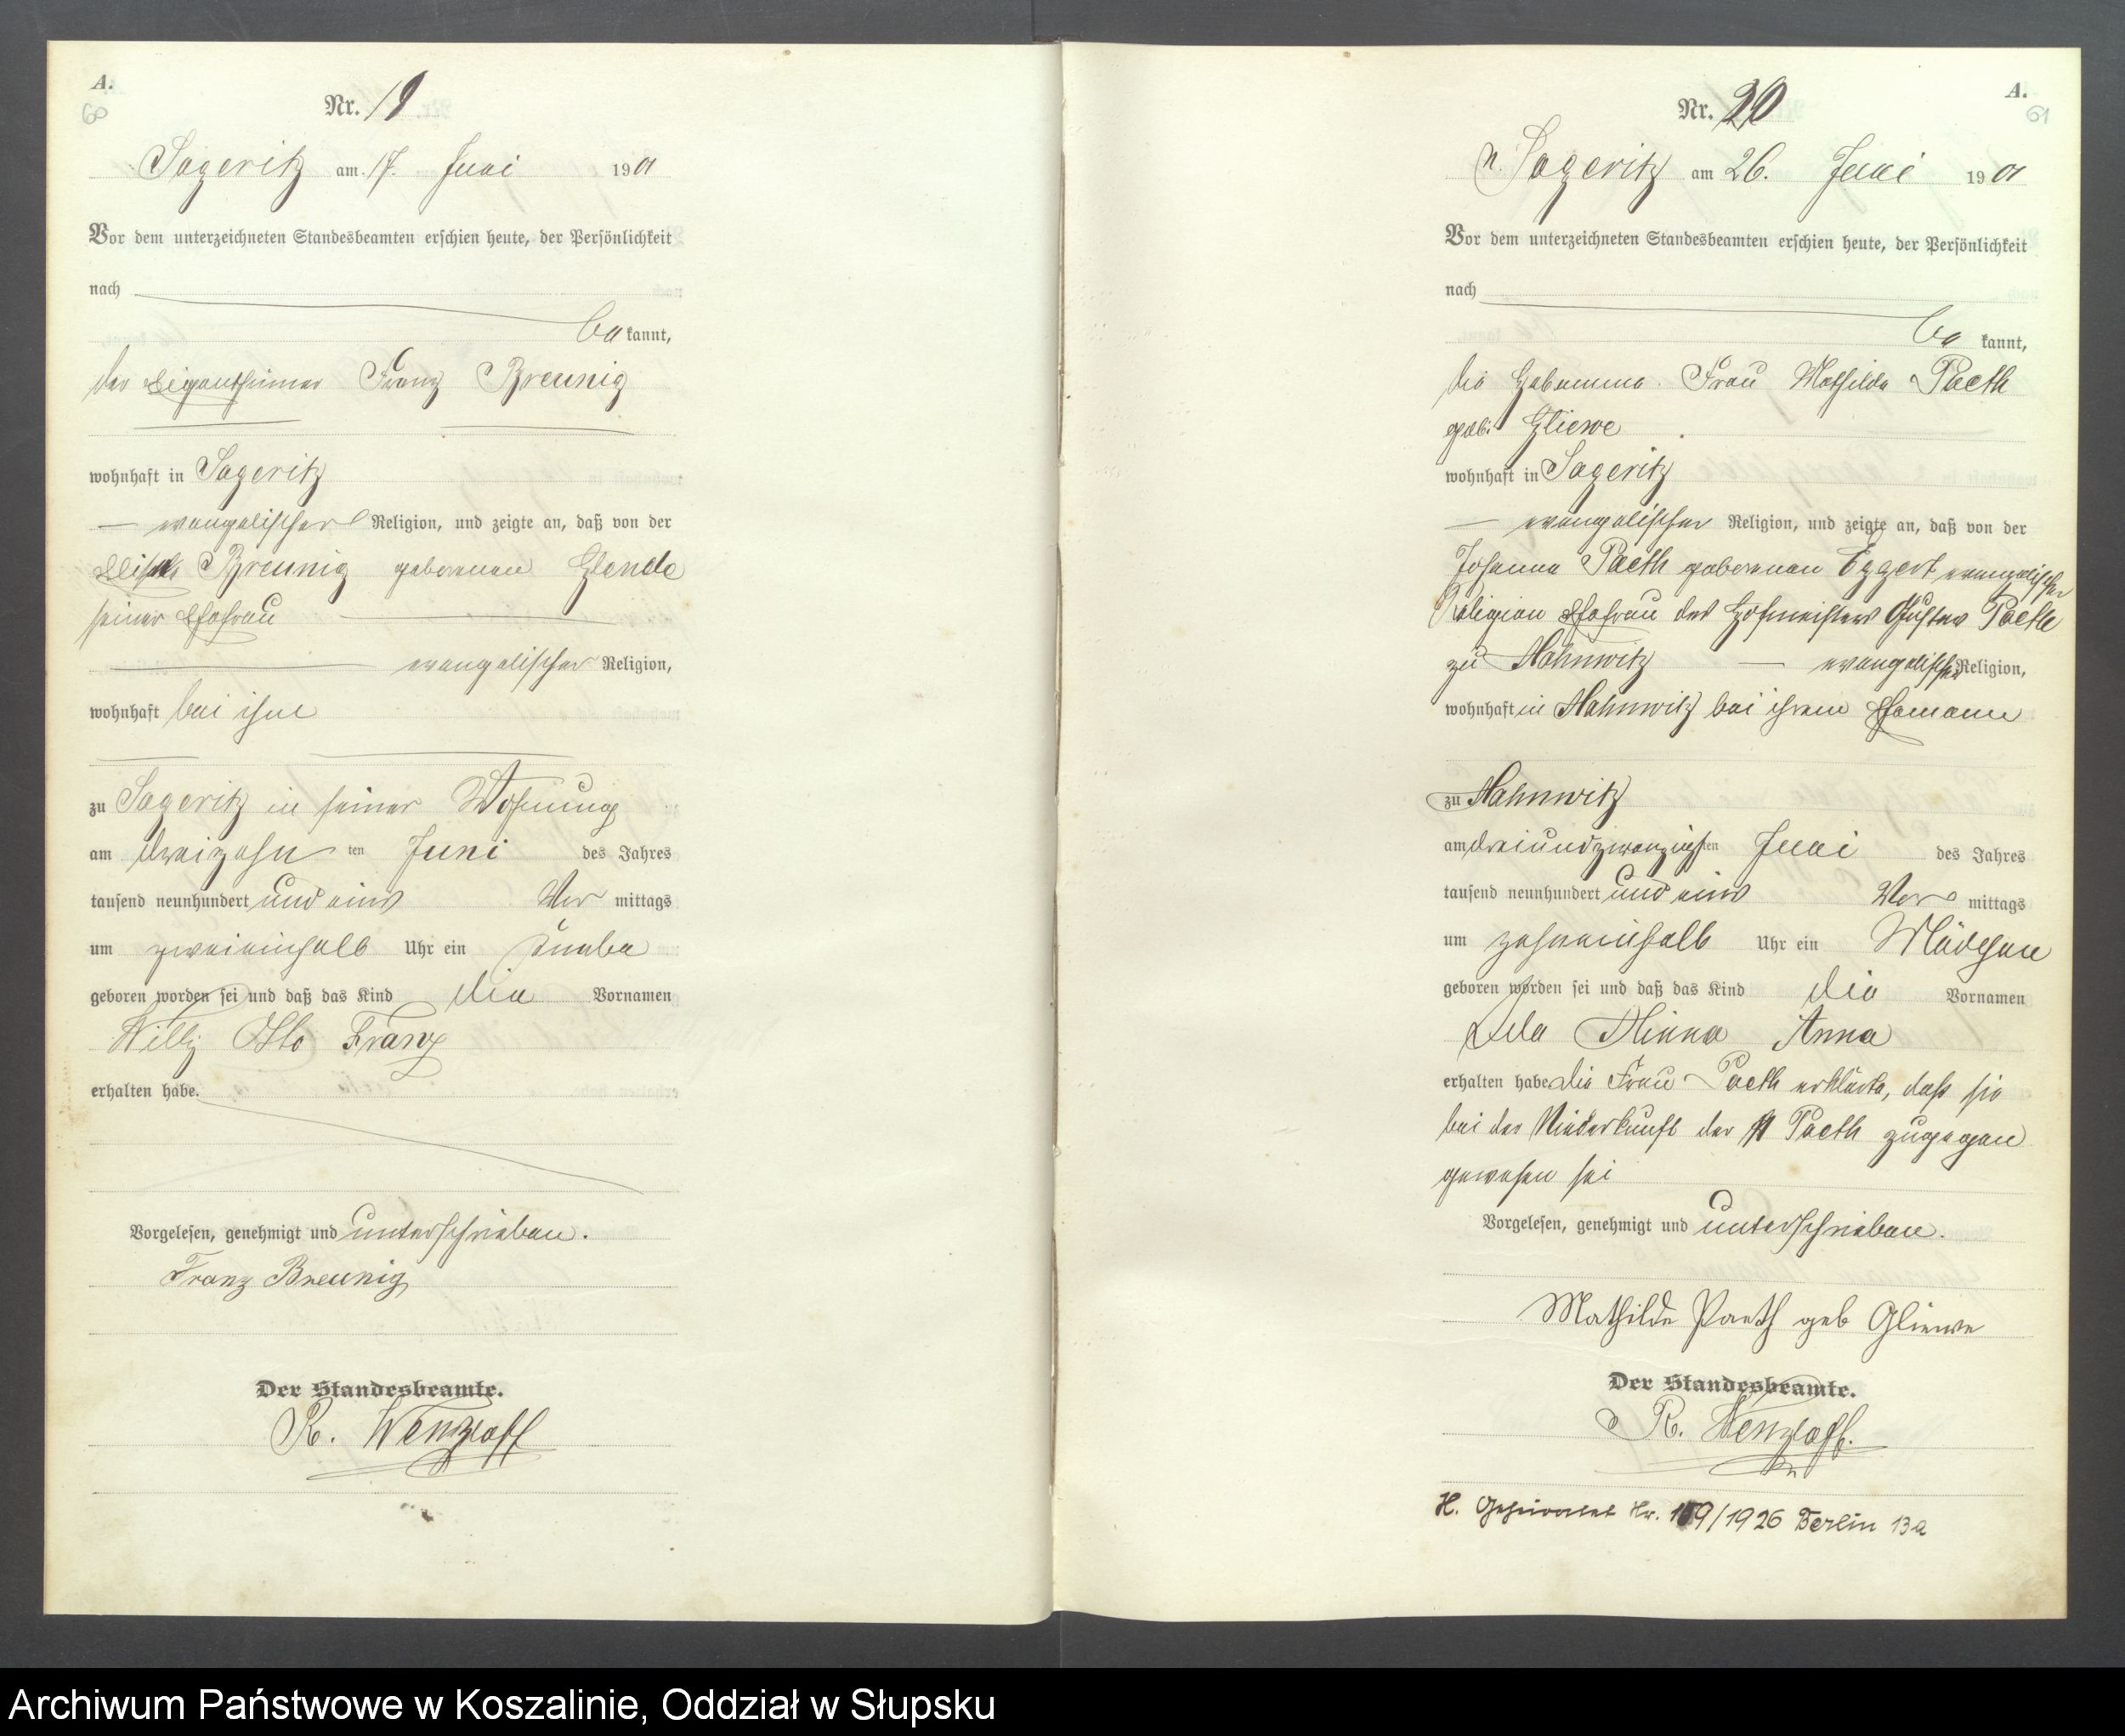 A.
60
Nr. 19
Sageritz am 17. Juni 1901
Vor dem unterzeichneten Standesbeamten erschien heute, der Persönlichkeit
nach
be kannt,
der Eigenthümer Franz Breunig
wohnhaft in Sageritz
evangelischer Religion, und zeigte an, daß von der
Breunig geborenen Glende
seiner Ehefrau
evangelischer Religion,
wohnhaft bei ihm
zu Sageritz in seiner Wohnung
am dreizehn ten Juni des Jahres
tausend neunhundert und eins Vor mittags
um zweieinhalb Uhr ein Knabe
geboren worden sei und daß das Kind die Vornamen
Willy Otto Franz
erhalten habe.
Vorgelesen, genehmigt und unterschrieben.
Franz Breunig
Der Standesbeamte.
R. Wenzlaff
A.
61
Nr. 20
Sageritz am 26. Juni 1901
Vor dem unterzeichneten Standesbeamten erschien heute, der Persönlichkeit
nach
be kannt,
die Hebamme Frau Mathilde Paeth
geb: Gliewe
wohnhaft in Sageritz
evangelischer Religion, und zeigte an, daß von der
Johanna Paeth geborenen Eggert evangelischer
Religion Ehefrau des Hofmeisters Gustav Paeth
zu Hahnwitz evangelischer Religion,
wohnhaft in Hahnwitz bei ihrem Ehemann
zu Hahnwitz
am dreiundzwanzigsten Juni des Jahres
tausend neunhundert und eins Vor mittags
um zehneinhalb Uhr ein Mädchen
geboren worden sei und daß das Kind die Vornamen
Minna Anna
erhalten habe die Frau Paeth erklärte, daß sie
bei der Niederkunft der Paeth zugegen
gewesen sei
Vorgelesen, genehmigt und unterschrieben.
Mathilde Paeth geb Gliewe
Der Standesbeamte.
R. Wenzlaff.
H. Geheiratet Nr. 109/1926 Berlin 13a
Archiwum Państwowe w Koszalinie, Oddział w Słupsku